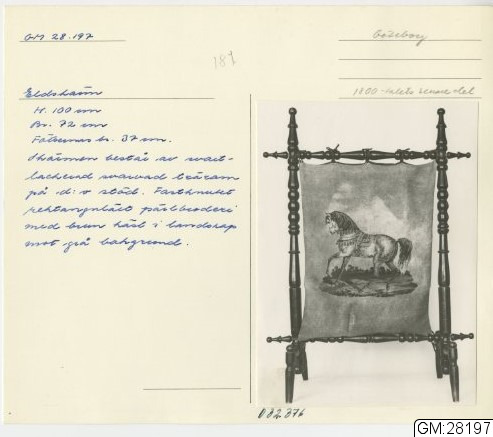 GM 28.197
Göteborg
187
1800-talets senare del
Eldskärm
H. 100 cm
Br. 72 cm
Fötternas br. 37 cm.
Skärmen består av svart-
lackerad svarvad träram
på d:o stöd. Fastknutet
rektangulärt pärlbroderi
med brun häst i landskap
mot grå bakgrund.
GM:28197